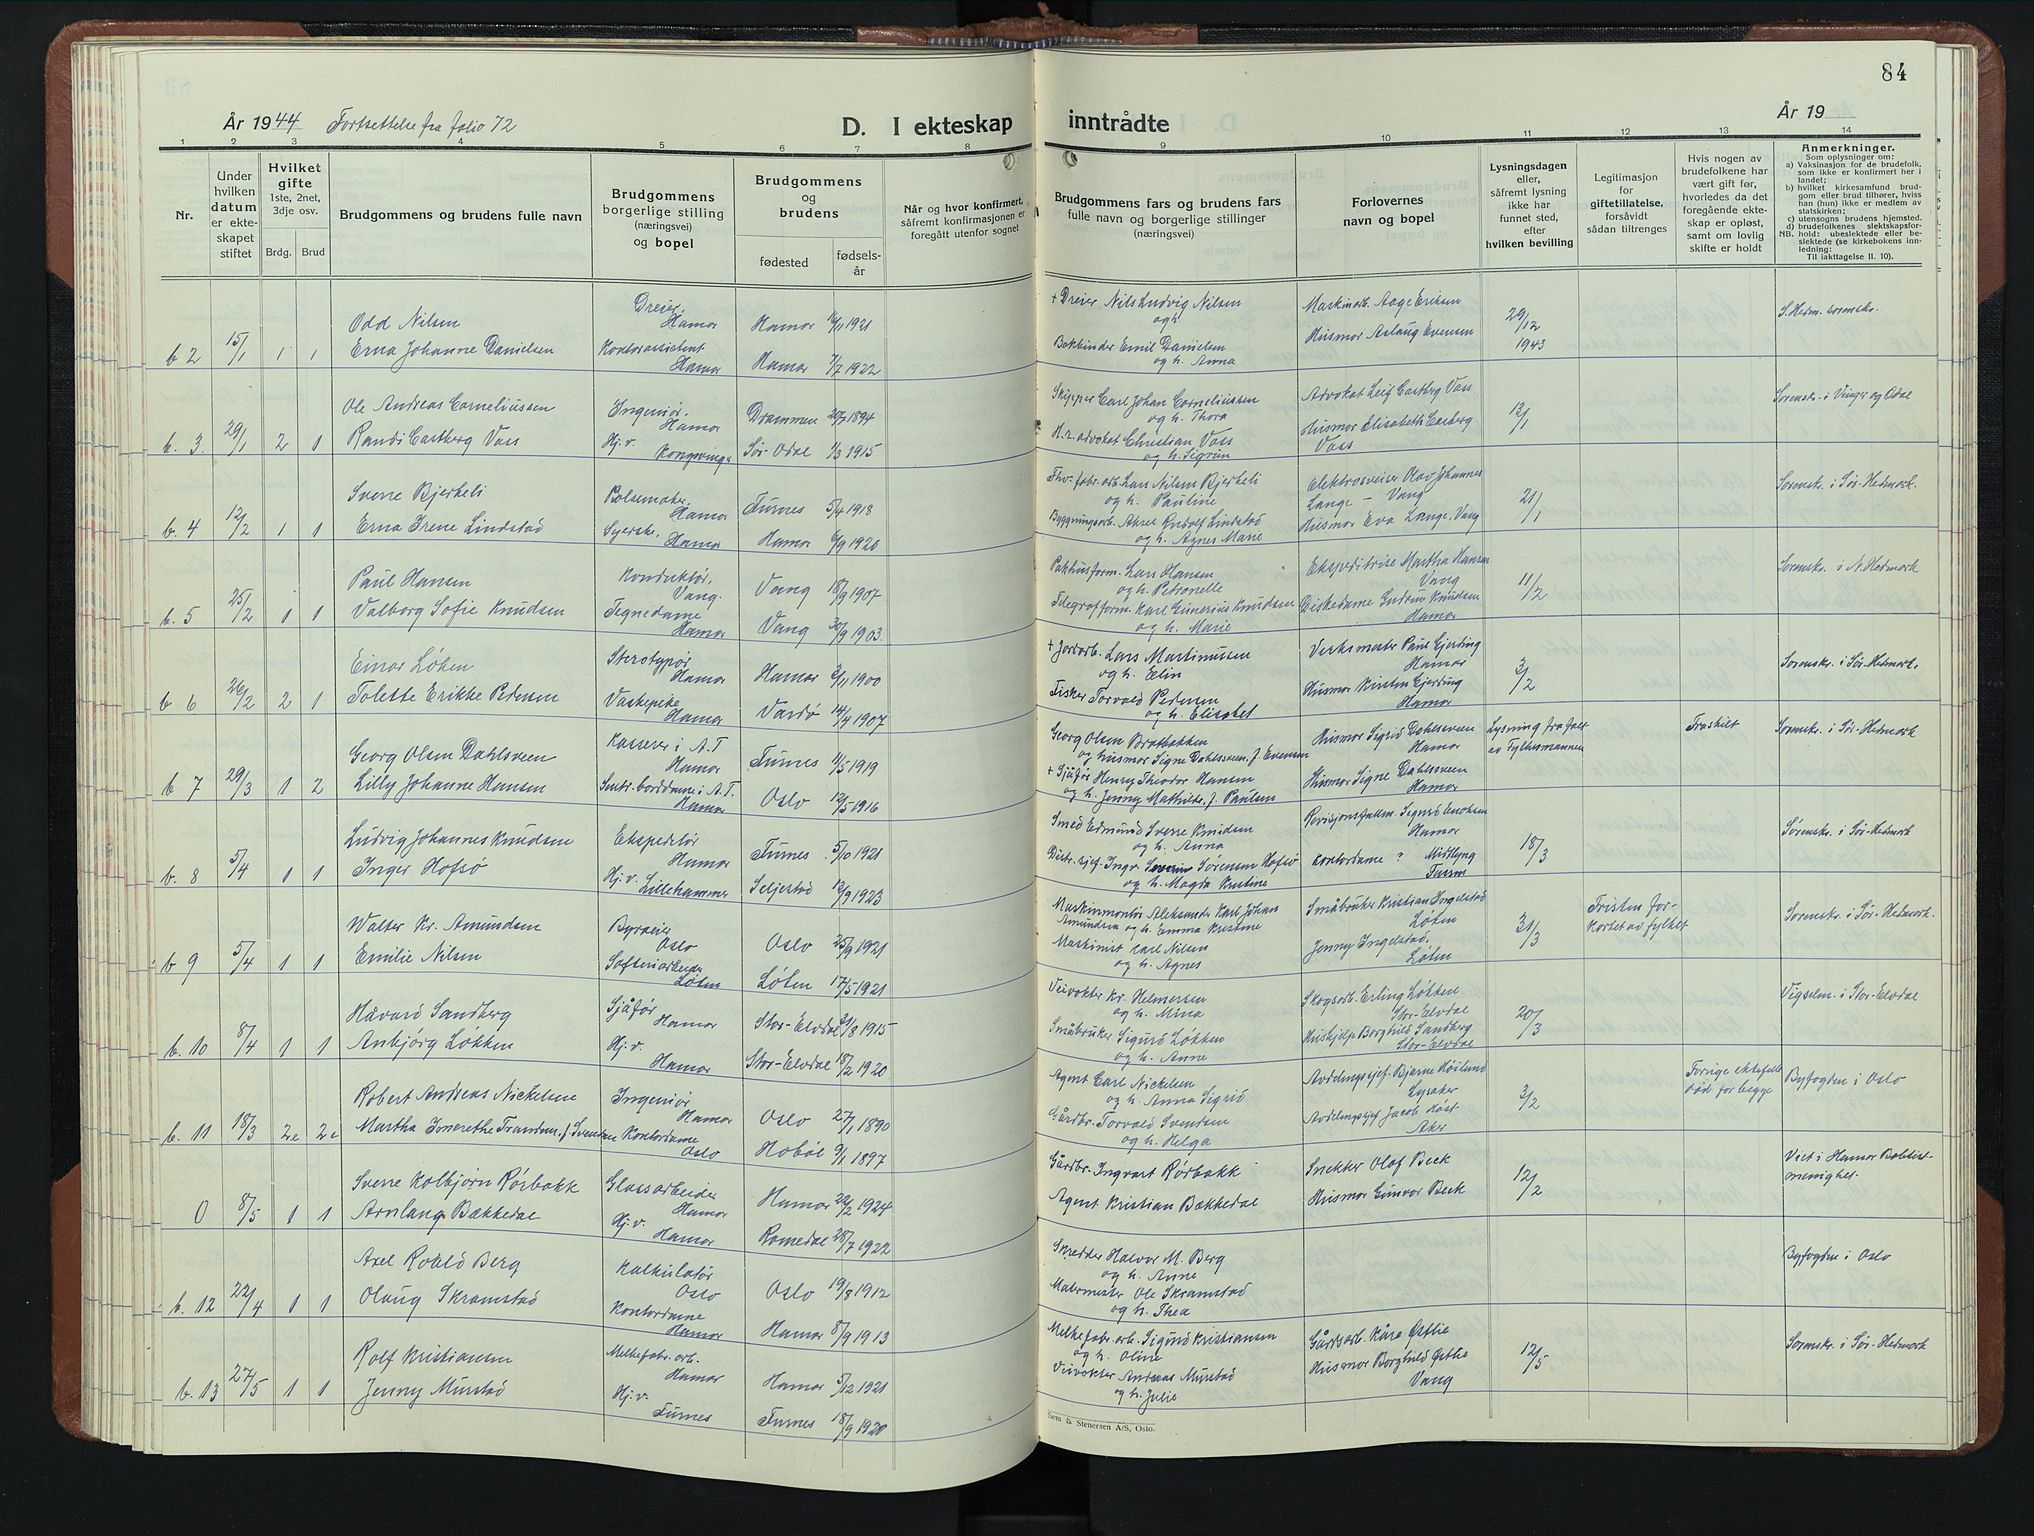 84
År 1944 Fortsettelse fra folio 72
D. I ekteskap inntrådte
År 19
1 2 3 4 5 6 7 8 9 10 11 12 13 14
Nr.
Under
hvilken
datum
er ekte-
skapet
stiftet
Hvilket
gifte
1ste, 2net,
3dje osv.
Brdg. Brud
Brudgommens og brudens fulle navn
Brudgommens
borgerlige stilling
(næringsvei)
og bopel
Brudgommens
og
brudens
fødested
fødsels-
år
Når og hvor konfirmert,
såfremt konfirmasjonen er
foregått utenfor sognet
Brudgommens fars og brudens fars
fulle navn og borgerlige stillinger
(næringsvei)
Forlovernes
navn og bopel
Lysningsdagen
eller,
såfremt lysning
ikke har
funnet sted,
efter
hvilken bevilling
Legitimasjon
for
giftetillatelse,
forsåvidt
sådan tiltrenges
Hvis nogen av
brudefolkene har
vært gift før,
hvorledes da det
foregående ekte-
skap er opløst,
samt om lovlig
skifte er holdt
Anmerkninger.
Som oplysninger om:
a) Vaksinasjon for de brudefolk,
som ikke er konfirmert her i
landet;
b) hvilket kirkesamfund brud-
gom eller brud tilhører, hviss
han (hun) ikke er medlem av
statskirken;
c) utensogns brudens hjemsted.
d) brudefolkenes slektskapsfor-
NB. hold: ubeslektede eller be-
slektede (se kirkebokens inn-
ledning:
Til iakttagelse II. 10).
b 2 15/1 1 1
Odd Nilsen Dreier, Hamar Hamar 1921
Erna Johanne Danielsen Kontorassistent Hamar Hamar 7/7 1922
+ Dreier Nils Ludvig Nilsen
og h.
Bokbinder Emil Danielsen
og h. Anna
Maskinarb. Aage Eriksen
Husmor Aslaug Evensen
29/12 1943
S. Hedm. sorenskr.
b. 3. 29/1 2 1
Ole Andreas Corneliussen Ingeniør. Hamar Drammen 1894
Randi Castberg Vass Hj. v. Kongsvinger Sør-Odal 1/3 1915
Skipper Carl Johan Corneliussen
og h. Thora
H.r. advokat Christian Vass
og h. Sigrun
Advokat Leif Castberg Vass
Husmor Elisabeth Casberg
Vass
13/1
Sorenskr. i Vinger og Odal
b. 4 12/2 1 1
Sverre Bjerkeli Pølsemaker, Hamar Furnes 5/4 1918
Erna Irene Lindstad Syerske, Hamar Hamar 6/9 1920
Thv. fabr. arb. Lars Nilsen Bjerkeli
og h. Pauline
Byggningsarb. Aksel Rudolf Lindstad
og h. Agnes Marie
Elektrosveiser Olav Johannes
Lange - Vang
Husmor Eva Lange, Vang
21/1
Sorenskr. i Sør-Hedmark.
b. 5 25/2 1 1
Paul Hansen Konduktør, Vang. Vang 18/9 1907
Valborg Sofie Knudsen Tegnedame Hamar Vang 30/9 1903.
Pakhusform. Lars Hansen
og h. Petronelle
Telegrafform. Karl Gunerius Knudsen
og h. Marie
Ekspeditrise Martha Hansen
Vang
Diskedame Gudrun Knudsen
Hamar
11/2
Sorenskr. i N. Hedmark
b 6 26/2 2 1
Einar Løten Sterotypør Hamar Hamar 2/11 1900
Tolette Erikke Pedersen Vaskepike Hamar Vardø 14/4 1907
+ Jordarb. Lars Martinusen
og h. Elin
Fisker Torvald Pedersen
og h. Elisabet
Verksmester Paul Gjerding
Hamar
Husmor Kirsten Gjerding
Hamar
3/2
Sorenskr. i Sør-Hedmark.
b 7 29/3 1 2
Georg Olsen Dahlsveen Kasserer i A.T Hamar Furnes 11/5 1919
Lilly Johanne Hansen Sentr. borddame i A.T. Hamar Oslo 12/5 1916
Georg Olsen Bratbakken
og husmor Signe Dahlsveen, f. Evensen
+ Sjåfør Henry Theodor Hansen
og h. Jenny Mathilde, f. Paulsen
Husmor Sigrid Dahlsveen
Hamar
Husmor Signe Dahlsveen
Hamar
Lysning frafalt
av Fylkesmannen
Fraskilt
Sorenskr. i Sør-Hedmark
b. 8 5/4 1 1
Ludvig Johannes Knudsen Ekspeditør Hamar Furnes 5/10 1921
Inger Hofsø Hj. v. Lillehammer Seljestad 12/9 1923
Smed Edmund Sverre Knudsen
og h. Anna
Distr. sjef. Ingv. Severin Sørensen Hofsø
og h. Magda Kristine
Revisjonsfullm. Sigurd Enoksen
Hamar
Kontordame ? Midtlyng
Furnes
18/3
Sørenskr. i Sør-Hedmark
b 9 5/4 1 1
Walter Kr. Amundsen Oslo Oslo 25/9 1921
Emilie Nilsen Løten Løten 17/5 1921
Maskinmontør Aleksander Karl Johan
Amundsen og h. Emma Kristine
Maskinist Carl Nilsen
og h. Agnes
Småbruker Kristian Ingelstad
Løten
Jenny Ingelstad,
Løten
31/3
Fristen for-
kortet av fylket
Sorenskr. i Sør-Hedmark.
b. 10 8/4 1 1
Håvard Sandberg Sjåfør Hamar Stor-Elvdal 21/8 1915
Anbjørg Løkken Hj. v. Hamar Stor-Elvdal 18/2 1920
Veivokter Kr. Helmersen
og h. Mina
Småbruker Sigurd Løkken
og h. Anne
Skogsarb. Erling Løkken
Stor-Elvdal
Hushjelp Borghild Sandberg
Stor-Elvdal
20/3
Vigselm. i Stor-Elvdal
b. 11 18/3 2e 2e
Robert Andreas Nickelsen Ingeniør Hamar Oslo 27/1 1890
Martha Ingerethe Trandem, f. Svendsen Kontordame Oslo Hobøl 9/1 1897
Agent Carl Nickelsen
og h. Anna Sigrid
Gårdbr. Torvald Svendsen
og h. Helga
Avdelingssjef. Bjarne Høilund
Lysaker
Avdelingssjef Jacob Høst
Aker
3/2
Forrige ektefelle
død for begge
Byfogden i Oslo
0 8/5 1 1
Sverre Kolbjørn Rørbakk Glassarbeider Hamar Hamar 22/2 1924
Arnlaug Bækkedal Hj. v. Hamar Romedal 28/7 1922
Gårdbr. Ingvart Rørbakk
Agent Kristian Bækkedal
Snekker Olaf Beck
Husmor Gunvor Beck
12/2
Viet i Hamar Baptist-
menighet.
b. 12 22/4 1 1
Axel Roald Berg Kalkulatør Oslo Oslo 19/8 1912
Olaug Skramstad Kontordame Hamar Hamar 8/9 1913
Skredder Halvor M. Berg
og h. Anne
Malermester Ole Skramstad
og h. Thea
Byfogden i Oslo
b. 13 27/5 1 1
Rolf Kristiansen Melkefabr. arb. Hamar Hamar 5/12 1921
Jenny Murstad Hj. v. Furnes Furnes 18/9 1920
Melkefabr. arb. Sigurd Kristiansen
og h. Oline
Veivokter Andreas Murstad
og h. Julie
Gårdsarb. Kåre Østlie
Husmor Borghild Østlie
Vang
12/5
Sorenskr. i Sør-Hedmark
Sem & Stenersen A/S, Oslo.